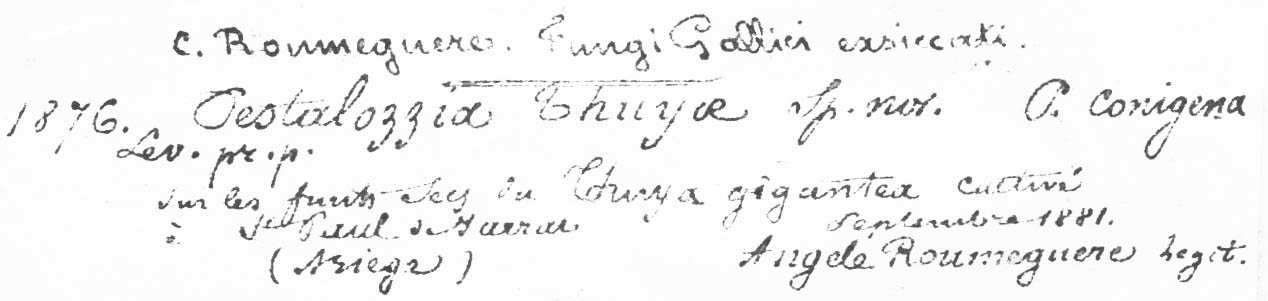 C. Roumeguere. Fungi Gallici exsiccati.
1876. Pestalozzia Thuyæ Sp. nov. P. Conigena
Lev. pr. p.
sur les fruits secs du Thuya gigantea cultivé
à St Paul de Jarrat Septembre 1881.
(Ariege) Angele Roumeguere legit.